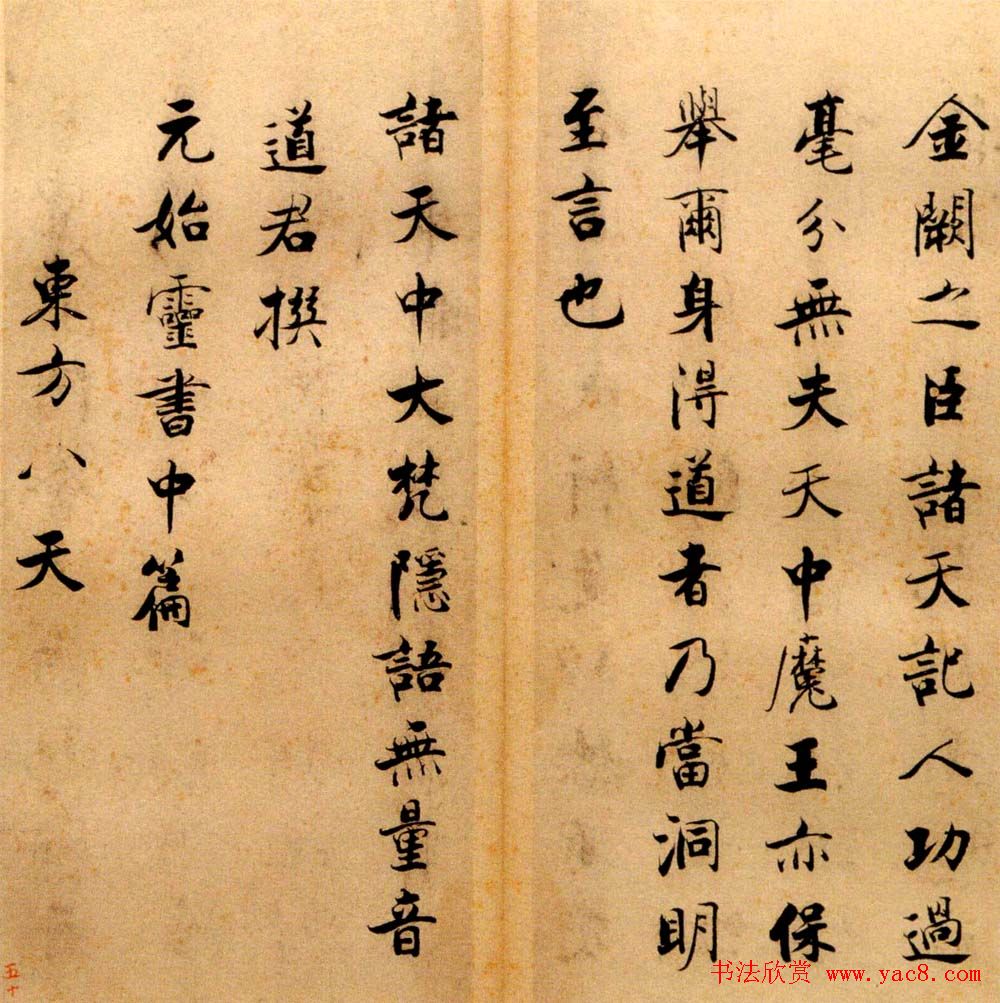 金闕之臣諸天記人功過
毫分無夫天中魔王亦保
舉爾身得道者乃當洞明
至言也
諸天中大梵隱語無量音
道君撰
元始靈書中篇
東方八天
五十
书法欣赏 www.yac8.com